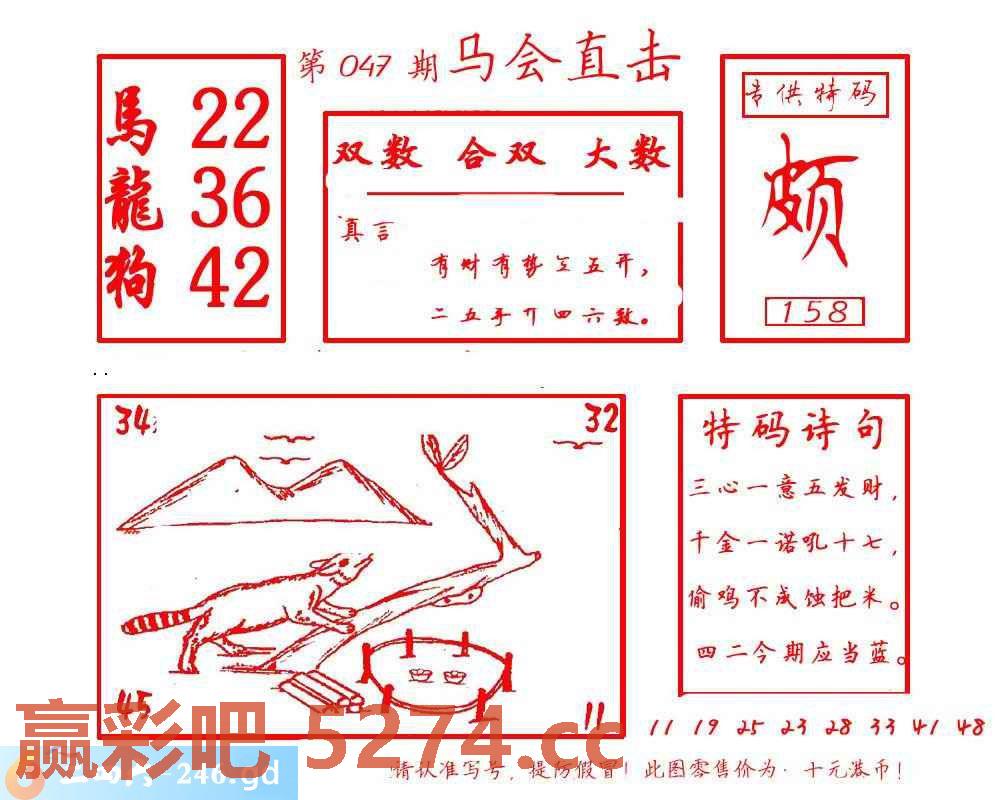 第 047 期 马会直击
馬 22
龍 36
狗 42
双数 合双 大数
真言
有财有势三五开，
二五开四六数。
专供特码
颇
158
34
32
45
11
特码诗句
三心一意五发财，
千金一诺吼十七，
偷鸡不成蚀把米。
四二今期应当蓝。
11 19 25 23 28 33 41 48
赢彩吧 5274.cc
-246.gd
请认准写号，提防假冒！此图零售价为·十元港币！